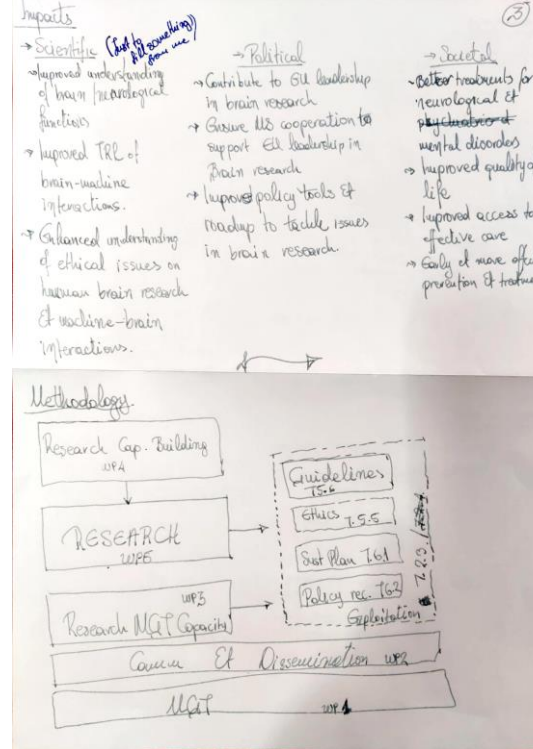 Impacts
③
→ Scientific (Just to
add something
from me)
→ Improved understanding
of brain/neurological
functions
→ Improved TRL of
brain-machine
interactions.
→ Enhanced understanding
of ethical issues on
human brain research
& machine-brain
interactions.
→ Political
→ Contribute to EU leadership
in brain research
→ Ensure MS cooperation to
support EU leadership in
Brain research
→ Improve policy tools &
roadmap to tackle issues
in brain research.
→ Societal
→ Better treatments for
neurological &
mental disorders
→ Improved quality o
life
→ Improved access to
effective care
→ Early & more effec
prevention & treatme
Methodology
Research Cap. Building
WP4
RESEARCH
WP5
WP3
Research MGT Capacity
Guidelines
T5.6
Ethics T.5.5
Sust Plan T.6.1
Policy rec. T6.2
Exploitation
T.2.3
Comm & Dissemination WP2
MGT WP1